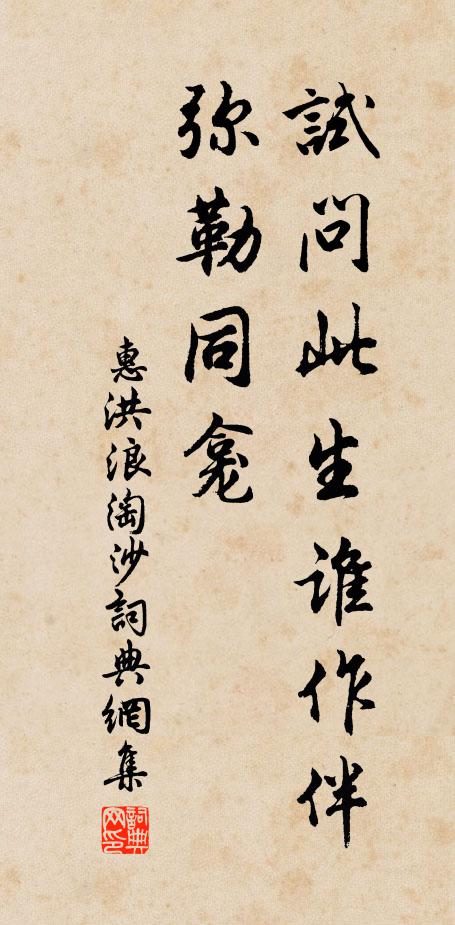 試問此生誰作伴
弥勒同龛
惠洪浪淘沙詞典網集
詞典网印